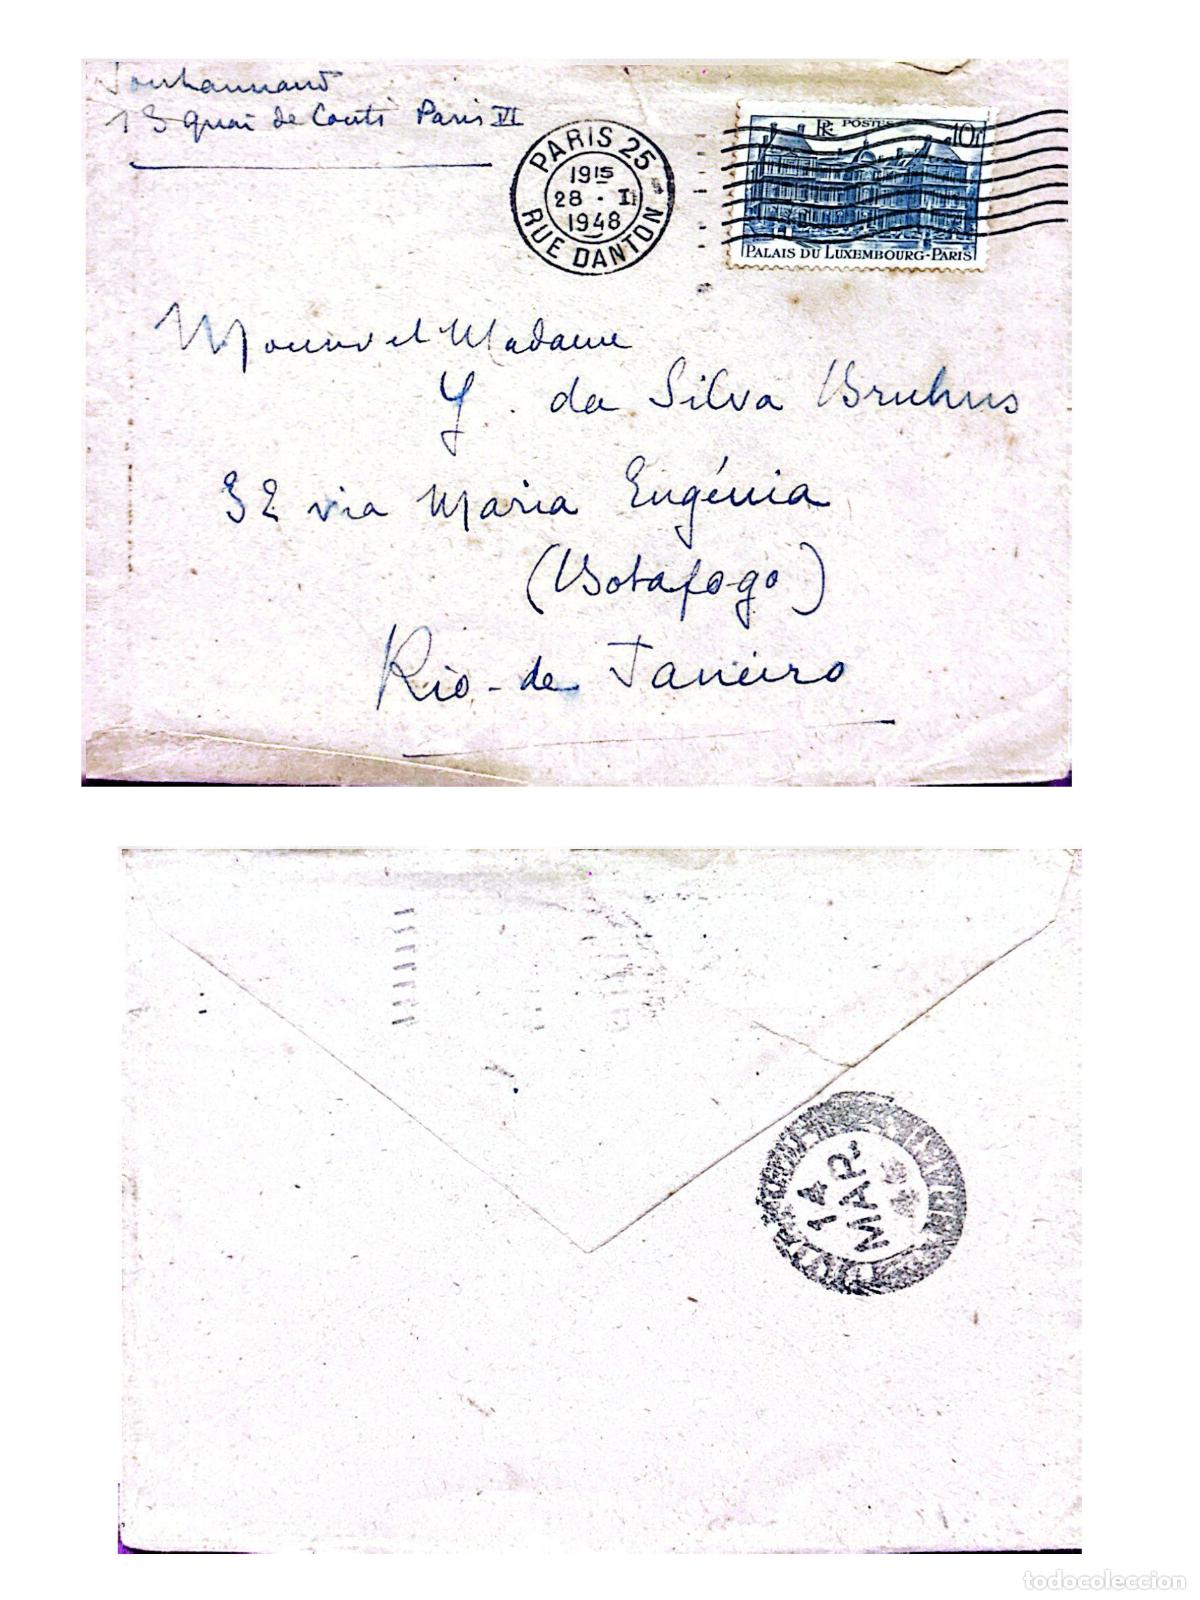 Jouhannaud
13 quai de Conti Paris VI
PARIS 25
19 15
28 · II
1948
RUE DANTON
RF POSTES 10F
PALAIS DU LUXEMBOURG-PARIS
Monsr et Madame
Y. da Silva Bruhns
32 via Maria Eugénia
(Botafogo)
Rio-de Janeiro
14
MAR.
todocoleccion